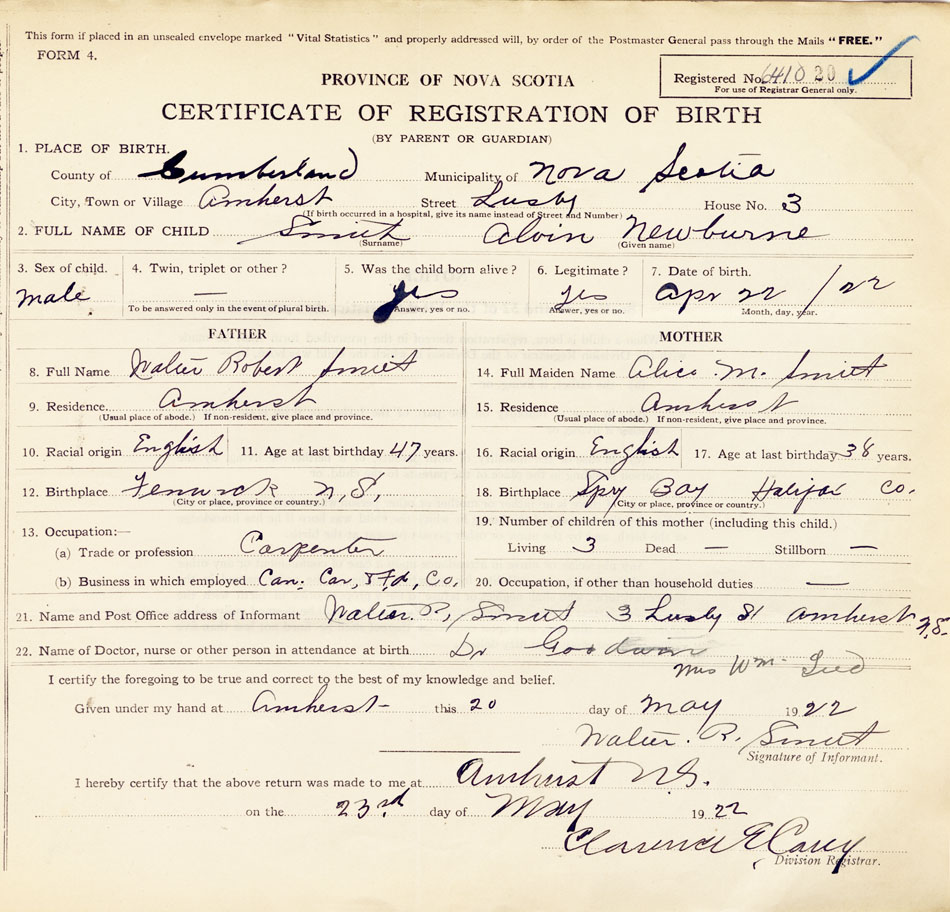 This form if placed in an unsealed envelope marked "Vital Statistics" and properly addressed will, by order of the Postmaster General pass through the Mails "FREE."
FORM 4.
PROVINCE OF NOVA SCOTIA
Registered No. 6410 20
For use of Registrar General only.
CERTIFICATE OF REGISTRATION OF BIRTH
(BY PARENT OR GUARDIAN)
1. PLACE OF BIRTH.
County of Cumberland Municipality of Nova Scotia
City, Town or Village Amherst Street Lusby House No. 3
(If birth occurred in a hospital, give its name instead of Street and Number)
2. FULL NAME OF CHILD Smith Alvin Newburne
(Surname) (Given name)
3. Sex of child. 4. Twin, triplet or other? 5. Was the child born alive? 6. Legitimate? 7. Date of birth.
male — yes yes Apr 22 / 22
To be answered only in the event of plural birth. Answer, yes or no. Answer, yes or no. Month, day, year.
FATHER MOTHER
8. Full Name Walter Robert Smith 14. Full Maiden Name Alice. M. Smith
9. Residence. Amherst 15. Residence Amherst
(Usual place of abode.) If non-resident, give place and province. (Usual place of abode.) If non-resident, give place and province.
10. Racial origin English 11. Age at last birthday 47 years. 16. Racial origin English 17. Age at last birthday 38 years.
12. Birthplace Fenwick N.S. 18. Birthplace Spry Bay Halifax Co.
(City or place, province or country.) (City or place, province or country.)
13. Occupation:— 19. Number of children of this mother (including this child.)
(a) Trade or profession Carpenter Living 3 Dead — Stillborn —
(b) Business in which employed Can. Car, & Fd, Co. 20. Occupation, if other than household duties —
21. Name and Post Office address of Informant Walter. R. Smith 3 Lusby St Amherst N.S.
22. Name of Doctor, nurse or other person in attendance at birth Dr Goodwin
Mrs Wm
I certify the foregoing to be true and correct to the best of my knowledge and belief.
Given under my hand at Amherst this 20 day of May 1922
Walter. R. Smith
Signature of Informant.
I hereby certify that the above return was made to me at Amherst N.S.
on the 23rd day of May 1922
Clarence E. Casey
Division Registrar.